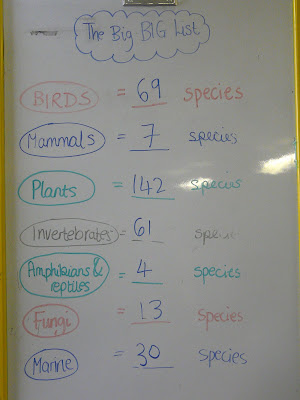 The Big BIG List
BIRDS = 69 species
Mammals = 7 species
Plants = 142 species
Invertebrates = 61
Amphibians &
reptiles = 4 species
Fungi = 13 species
Marine = 30 species